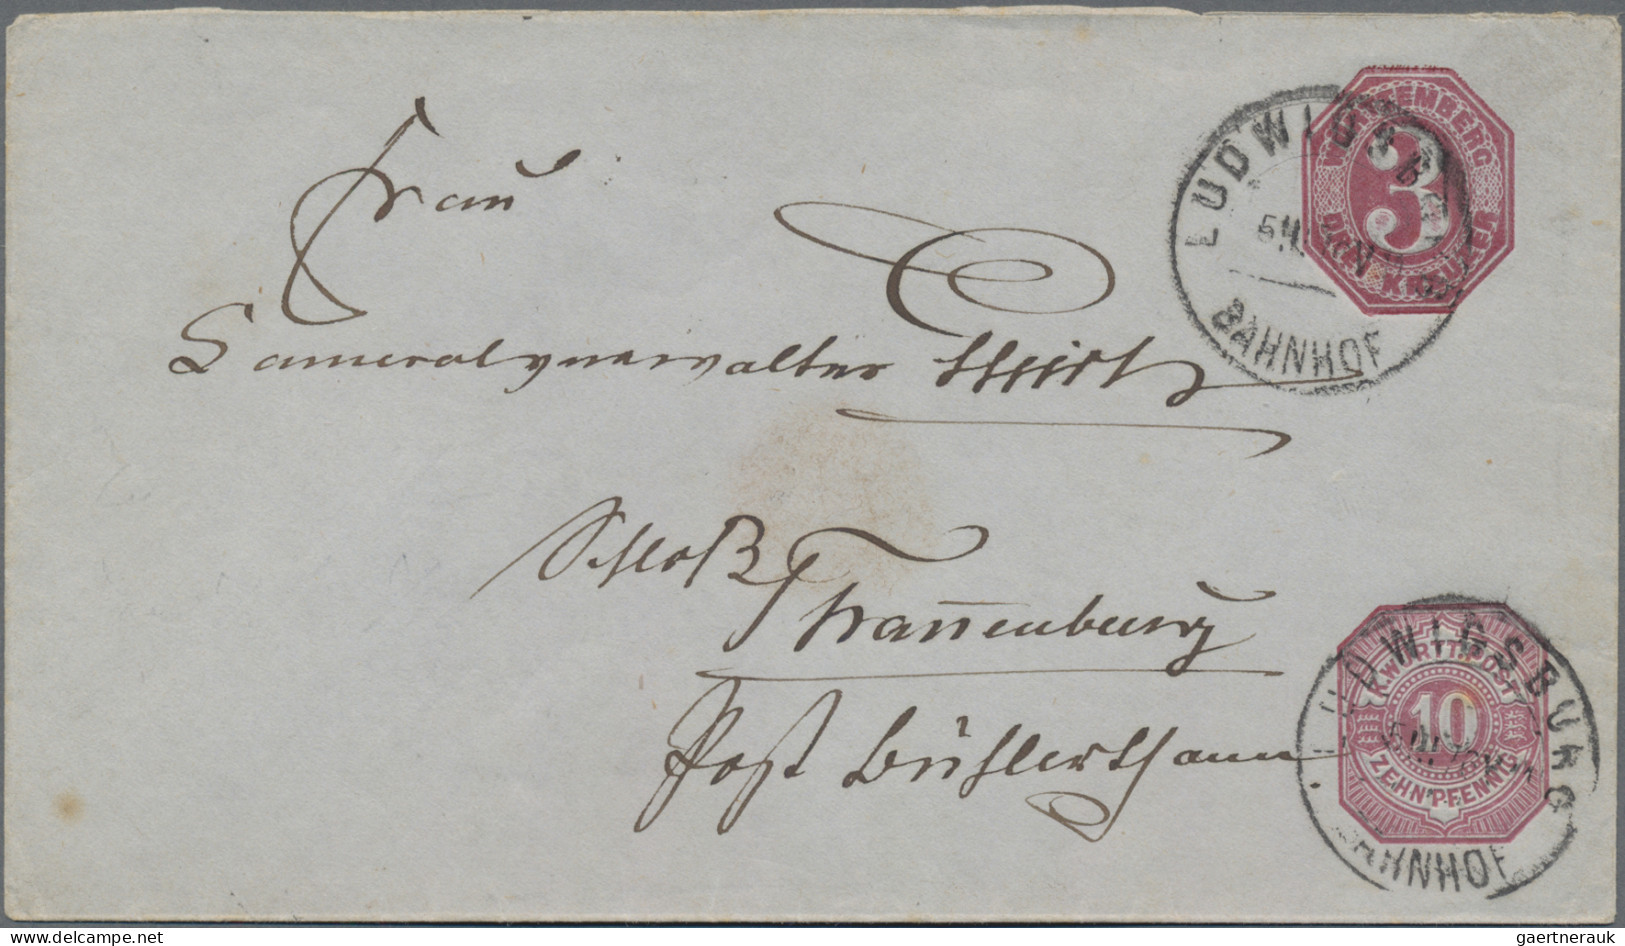 Frau
Cameralverwalter
Schloß
Tannenburg
Post Bühlerthann
WÜRTTEMBERG
3
DREI KREUZER
LUDWIGSBURG
BAHNHOF
K. WÜRTT. POST
10
ZEHN PFENNIG
LUDWIGSBURG
BAHNHOF
www.delcampe.net
gaertnerauk